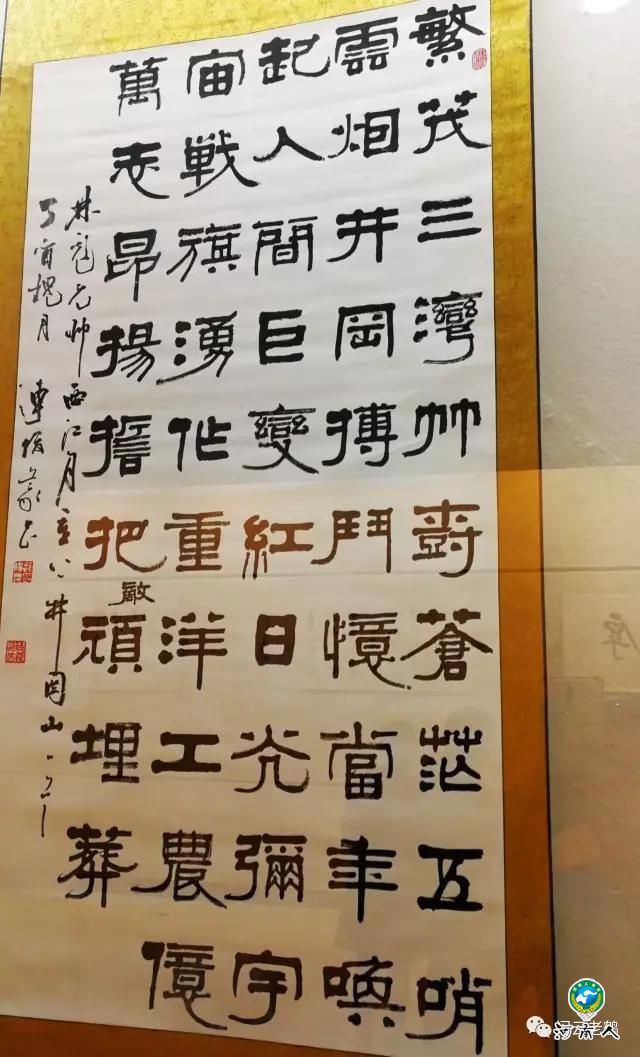 繁茂三灣竹尌蒼茫五哨
雲烟井岡搏鬥憶當年喚
起人間巨變紅日光彌宇
宙戦旗湧作重洋工農億
萬志昂揚誓把頑敵埋葬
林彪元帅西江月重上井岡山一首
丁酉槐月 連振
序
河南人